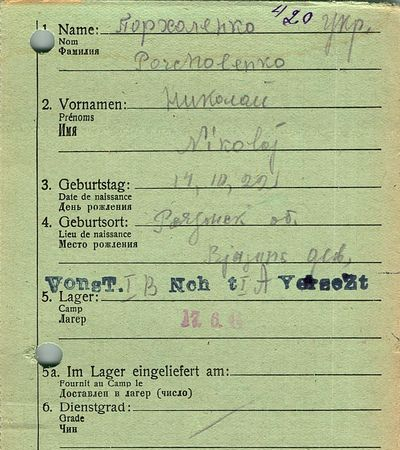 420 укр.
1. Name: Порхаленко
Nom
Фамилия
2. Vornamen: Николай
Prénoms
Имя
Nikolaj
3. Geburtstag: 17,10,221
Date de naissance
День рождения
4. Geburtsort: об.
Lieu de naissance
Место рождения
Vonst. I B Nch t I A Versezt
5. Lager:
Camp
Лагер
17. 6.
5a. Im Lager eingeliefert am:
Fournit au Camp le
Доставлен в лагер (число)
6. Dienstgrad:
Grade
Чин